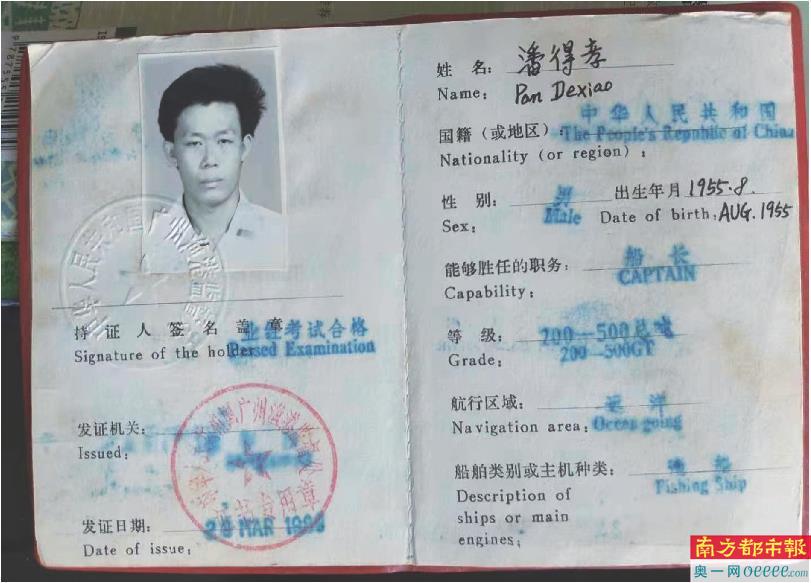 中华人民共和国广州渔港监督
持证人签名盖章
业经考试合格
Signature of the holder
Passed Examination
发证机关:
Issued:
发证日期:
29 MAR
Date of issue:
姓 名: 潘得孝
Name: Pan Dexiao
中华人民共和国
国籍(或地区):The People's Republic of China
Nationality (or region):
性 别: 男 出生年月 1955.8.
Sex: Male Date of birth: AUG. 1955
能够胜任的职务: 船长
Capability: CAPTAIN
等 级: 200—500总吨
Grade: 200—500GT
航行区域: 远洋
Navigation area: Ocean going
船舶类别或主机种类: 渔船
Description of Fishing Ship
ships or main
engines:
南方都市报
奥一网 oeeee.com